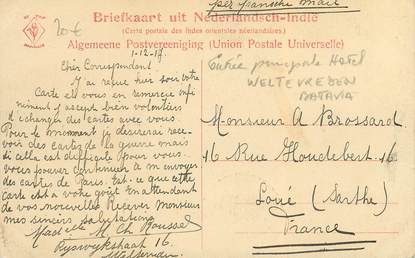 per fransche mail
20€
Briefkaart uit Nederlandsch-Indie
(Carte postale des Indes orientales néerlandaises)
Algemeene Postvereeniging (Union Postale Universelle)
1-12-17.
Cher Correspondant
J'ai reçue hier soir votre
Carte et vous en remercie infi-
niment j'accepte bien volontiers
d'échanger des cartes avec vous.
Pour le moment je desirerai rece-
voir des cartes de la guerre mais
si cella est difficile pour vous.
vous pouvez continuer a m'envoyer
des cartes de Paris. que cette
carte est a votre goût en attendant
de vos nouvelles Recever monsieur
mes sincers salutations
M. Ch Roussel
Ryswykstraat 16
Entrée principale Hotel
WELTEVREDEN
BATAVIA
Monsieur A Brossard
16 Rue Houdebert 16
Loué (Sarthe)
France